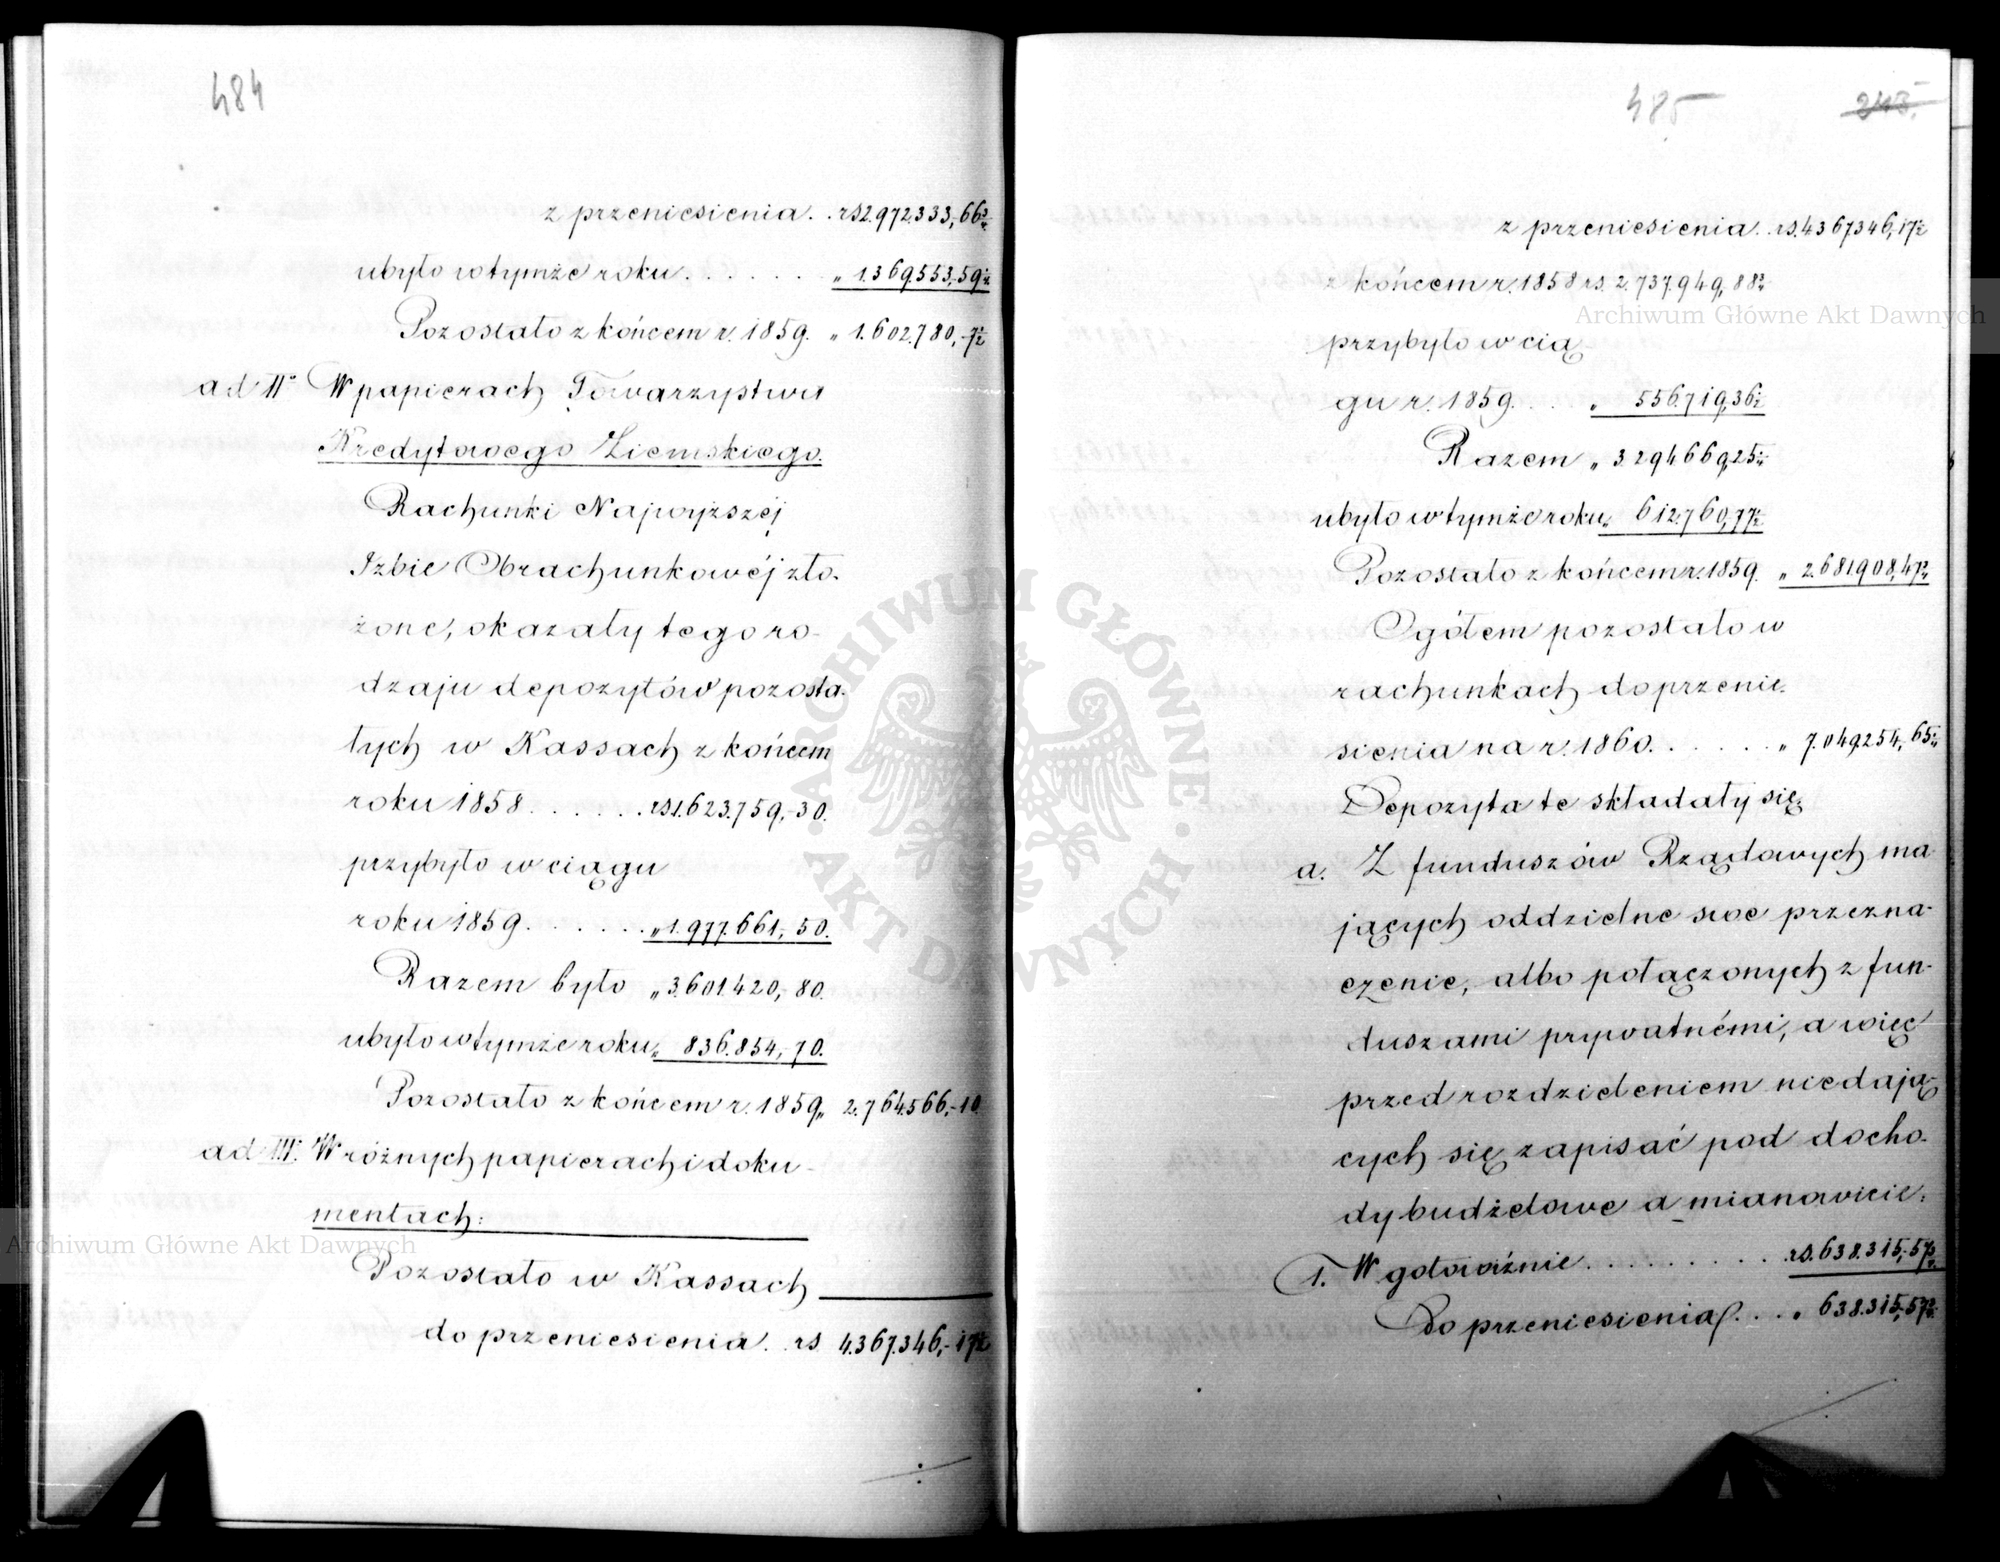 484
z przeniesienia . . rs 2.972.333,-66¾
ubyło w tymże roku . . . . . . „ 1.369.553,-59½
Pozostało z końcem r. 1859. „ 1.602.780,-7½
ad II° W papierach Towarzystwa
Kredytowego Ziemskiego.
Rachunki Najwyższéj
Izbie Obrachunkowéj zło-
żone, okazały tego ro-
dzaju depozytów pozosta-
łych w Kassach z końcem
roku 1858 . . . . . . rs 1.623.759,-30.
przybyło w ciągu
roku 1859 . . . . . . „ 1.977.661,-50.
Razem było „ 3.601.420,-80.
ubyło w tymże roku „ 836.854,-70.
Pozostało z końcem r. 1859 „ 2.764.566,-10.
ad III° W różnych papierach i doku-
mentach:
Pozostało w Kassach
do przeniesienia . rs 4.367.346,-17½
485 243.
z przeniesienia . rs. 4.367.346,17½
z końcem r. 1858 rs. 2.737.949,88¾
przybyło w cią
gu r. 1859 . . . „ 556.719,36½
Razem „ 3.294.669,25¼
ubyło w tymże roku „ 612.760,77½
Pozostało z końcem r. 1859. „ 2.681.908,47¾
Ogółem pozostało w
rachunkach do przenie-
sienia na r. 1860. . . . . . „ 7.049.254,-65¼
Depozyta te składały się
a. Z funduszów Rządowych ma-
jących oddzielne swe przezna-
czenie, albo połączonych z fun-
duszami prywatnémi, a więc
przed rozdzieleniem niedają-
cych się zapisać pod docho-
dy budżetowe a mianowicie:
1. W gotowiźnie . . . . . . . . . rs. 638.315,-57¾
Do przeniesienia . . . „ 638.315,57¾
Archiwum Główne Akt Dawnych
Archiwum Główne Akt Dawnych
ARCHIWUM GŁÓWNE
AKT DAWNYCH